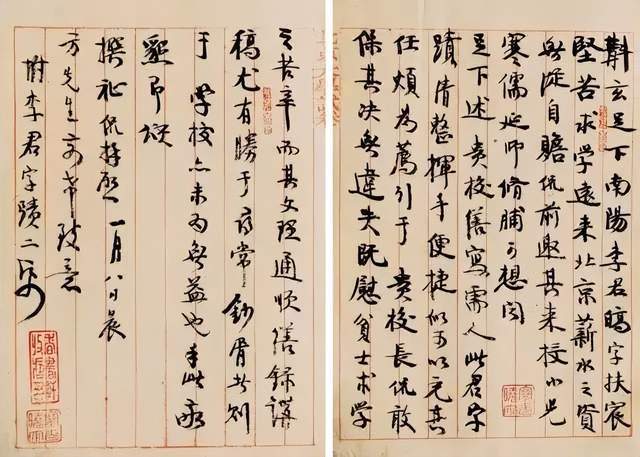 斠玄足下南陽李君暠字扶宸
堅苦求學遠來北京薪水之資
無從自贍侃前邀其來授小兒
寒儒延師脩脯可想聞
足下述貴校繕寫需人此君字
蹟清整揮手便捷似可以充其
任煩為薦引于 貴校長侃敢
保其決無違失既慰貧士求學
之苦辛而其文理通順繕錄講
稿尤有勝于尋常鈔胥者則
于 學校亦未為無益也手此敬
懇即頌
撰祉侃拜啟 一月八日晨
方先生前希致意
附李君字蹟二帋